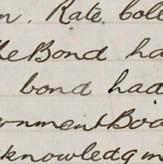 n. Rate coll
he Bond ha
bond had
ernment Boa
cknowledgm